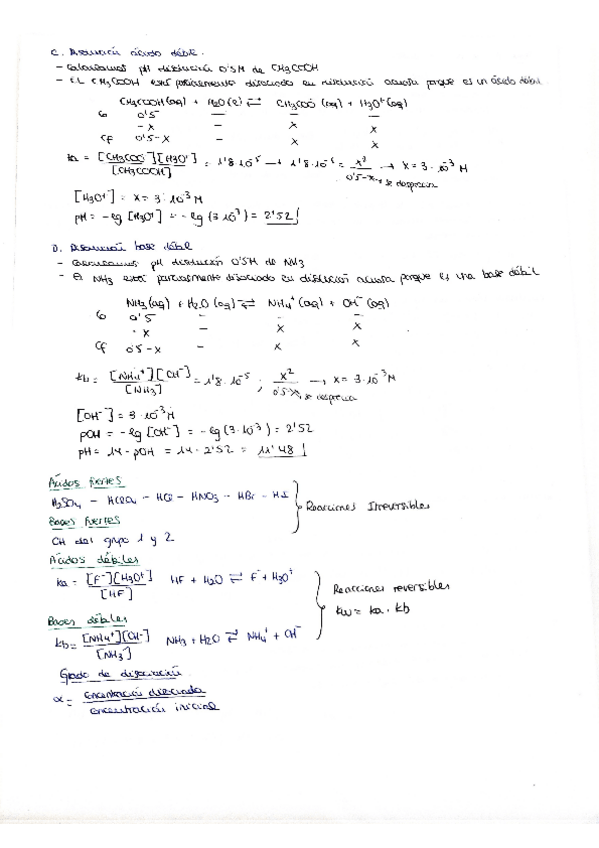 C. Disolución ácido débil.
- Calculamos pH disolución 0'5M de CH3COOH
- El CH3COOH está parcialmente disociado en disolución acuosa porque es un ácido débil
CH3COOH(aq) + H2O(l) ⇌ CH3COO⁻(aq) + H3O⁺(aq)
Co 0'5 — — —
-x — x x
Cf 0'5-x — x x
Ka = [CH3COO⁻][H3O⁺] / [CH3COOH] = 1'8·10⁻⁵ → 1'8·10⁻⁵ = x² / 0'5-x → se desprecia → x = 3·10⁻³ M
[H3O⁺] = x = 3·10⁻³ M
pH = -lg [H3O⁺] = -lg (3·10⁻³) = 2'52
D. Disolución base débil
- Calculamos pH disolución 0'5M de NH3
- El NH3 está parcialmente disociado en disolución acuosa porque es una base débil
NH3(aq) + H2O(aq) ⇌ NH4⁺(aq) + OH⁻(aq)
Co 0'5 — — —
-x — x x
Cf 0'5-x — x x
Kb = [NH4⁺][OH⁻] / [NH3] = 1'8·10⁻⁵ ; x² / 0'5-x → se desprecia → x = 3·10⁻³ M
[OH⁻] = 3·10⁻³ M
pOH = -lg [OH⁻] = -lg (3·10⁻³) = 2'52
pH = 14 - pOH = 14 - 2'52 = 11'48
Ácidos fuertes
H2SO4 - HClO4 - HCl - HNO3 - HBr - HI
Reacciones Irreversibles
Bases fuertes
OH del grupo 1 y 2
Ácidos débiles
Ka = [F⁻][H3O⁺] / [HF] HF + H2O ⇌ F⁻ + H3O⁺
Reacciones reversibles
Kw = Ka · Kb
Bases débiles
Kb = [NH4⁺][OH⁻] / [NH3] NH3 + H2O ⇌ NH4⁺ + OH⁻
Grado de disociación
α = concentración disociada / concentración inicial